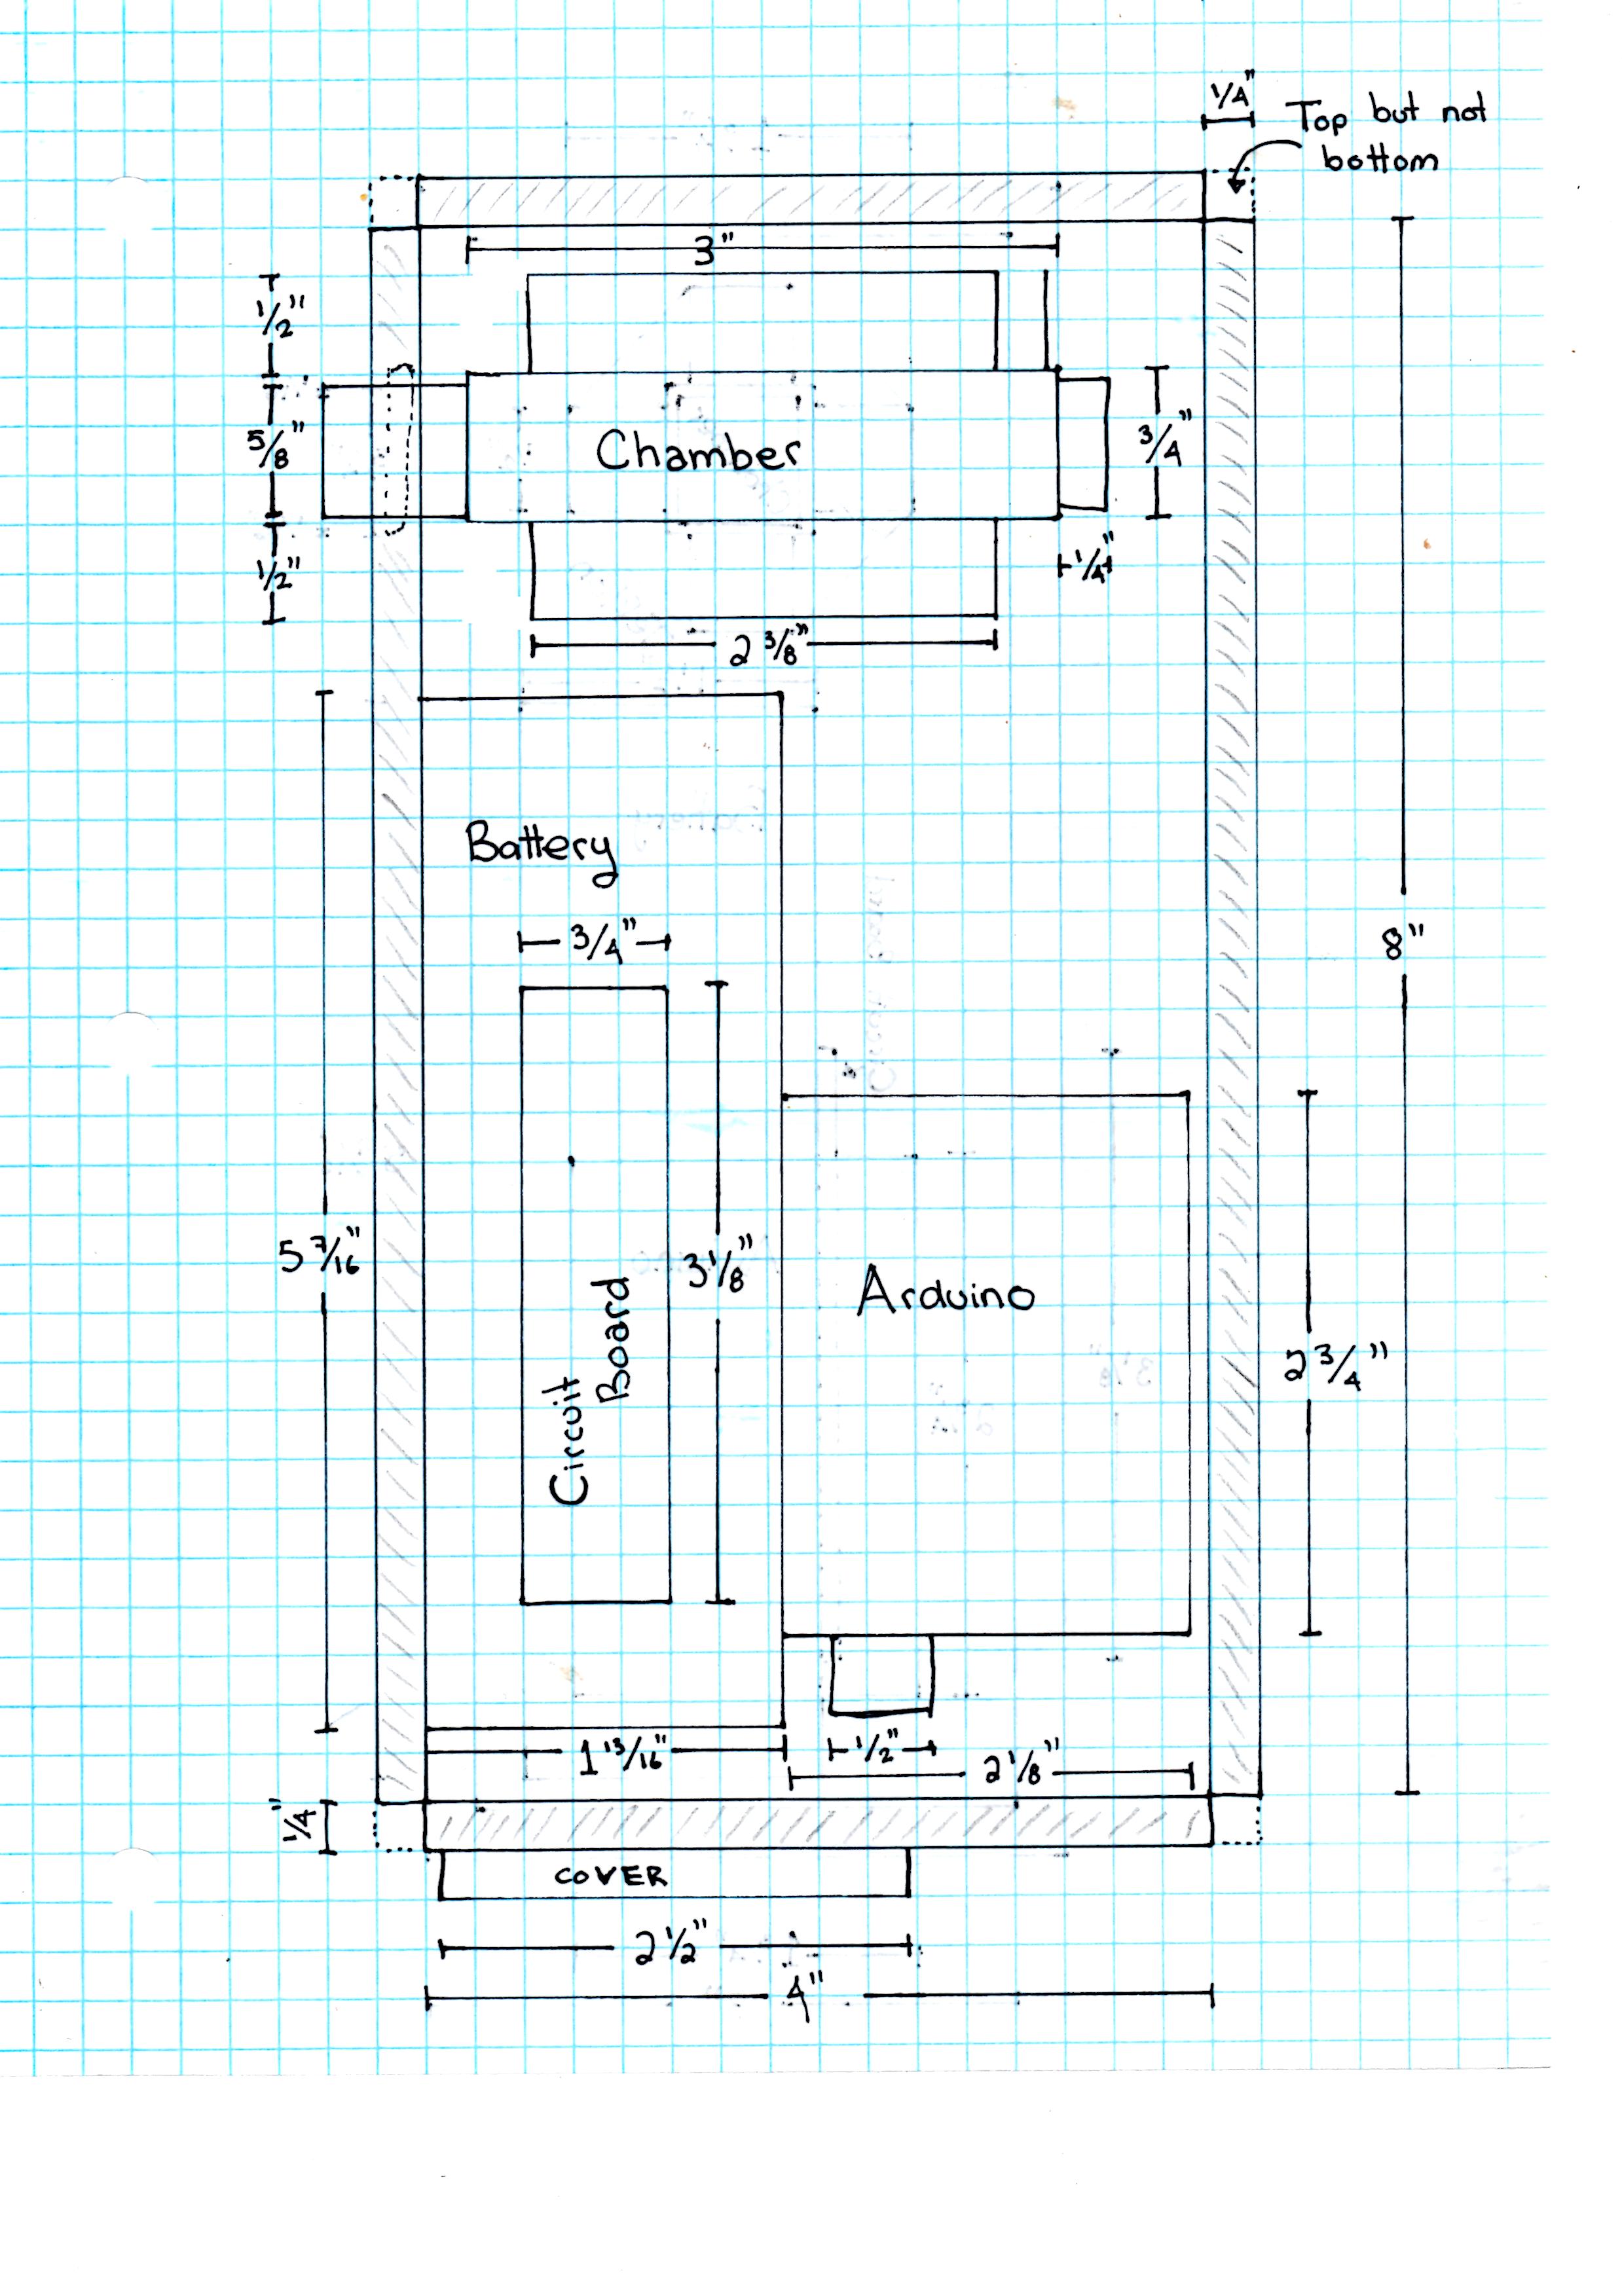 1/4"
Top but not
bottom
3"
1/2"
5/8"
Chamber
3/4"
1/2"
1/4"
2 3/8"
Battery
3/4"
8"
5 7/16"
3 1/8"
Circuit
Board
Arduino
2 3/4"
1 13/16"
1/2"
2 1/8"
1/4"
COVER
2 1/2"
4"